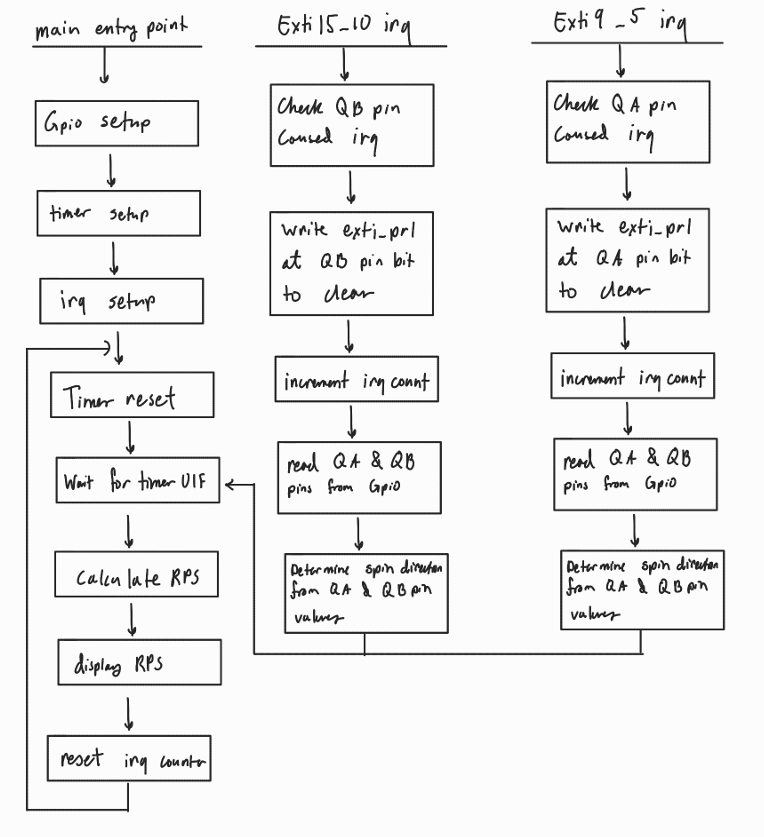 main entry point
Gpio setup
timer setup
irq setup
Timer reset
Wait for timer UIF
Calculate RPS
display RPS
reset irq counter
Exti15_10 irq
Check QB pin
Caused irq
Write exti_pr1
at QB pin bit
to clear
increment irq count
read QA & QB
pins from Gpio
Determine spin direction
from QA & QB pin
values
Exti9_5 irq
Check QA pin
Caused irq
Write exti_pr1
at QA pin bit
to clear
increment irq count
read QA & QB
pins from Gpio
Determine spin direction
from QA & QB pin
values